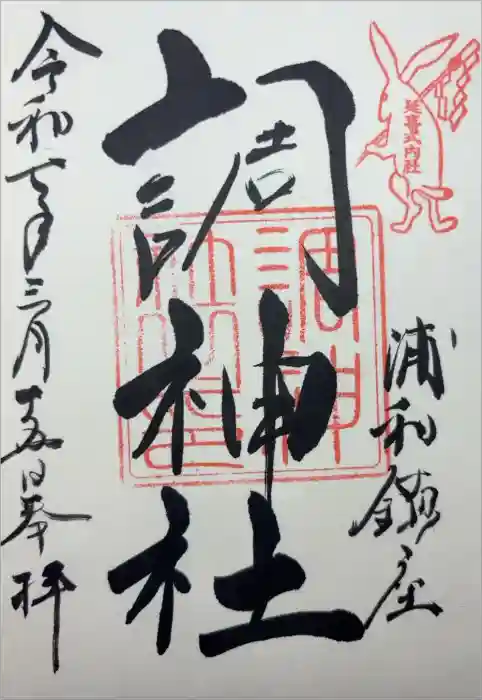 延喜式内社
浦和鎮座
調神社
調神社
令和七年三月十五日奉拝